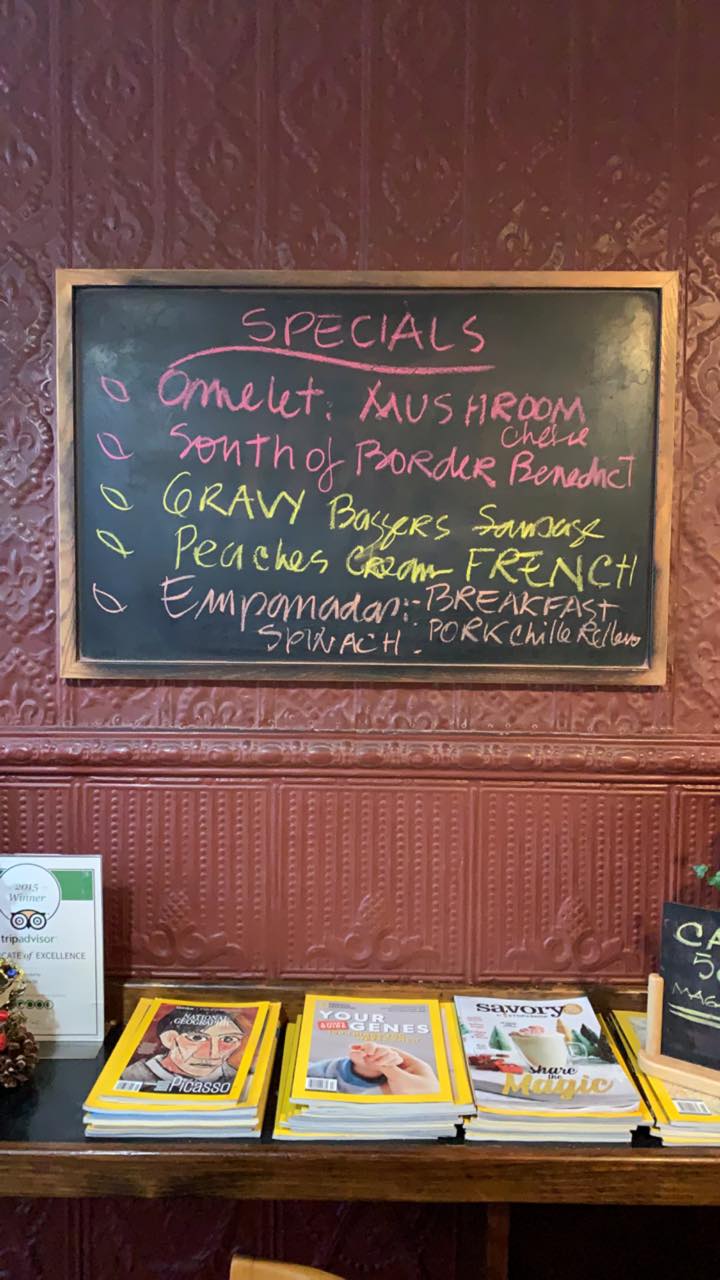 SPECIALS
Omelet: MUSHROOM
Cheese
South of BORDER Benedict
GRAVY Baggers Sausage
Peaches Cream FRENCH
Empanadas:- BREAKFAST
SPINACH. PORK Chille Relleno
2015
Winner
tripadvisor
CATE of EXCELLENCE
NATIONAL
GEOGRAPHIC
Picasso
YOUR
GENES
savory
share
the
Magic
CA
5
MAG